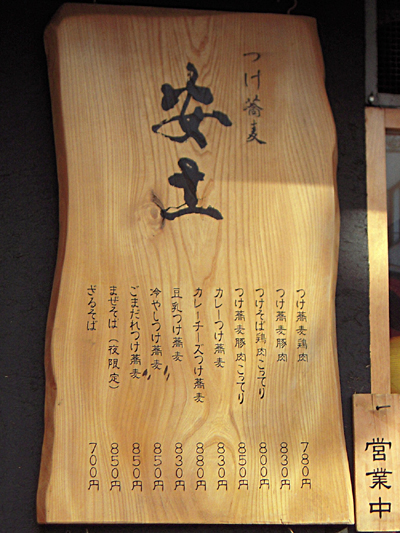 つけ蕎麦
安土
つけ蕎麦鶏肉 780円
つけ蕎麦豚肉 830円
つけそば鶏肉こってり 800円
つけ蕎麦豚肉こってり 850円
カレーつけ蕎麦 830円
カレーチーズつけ蕎麦 880円
豆乳つけ蕎麦 830円
冷やしつけ蕎麦 850円
ごまだれつけ蕎麦 850円
まぜそば（夜限定） 850円
ざるそば 700円
営業中